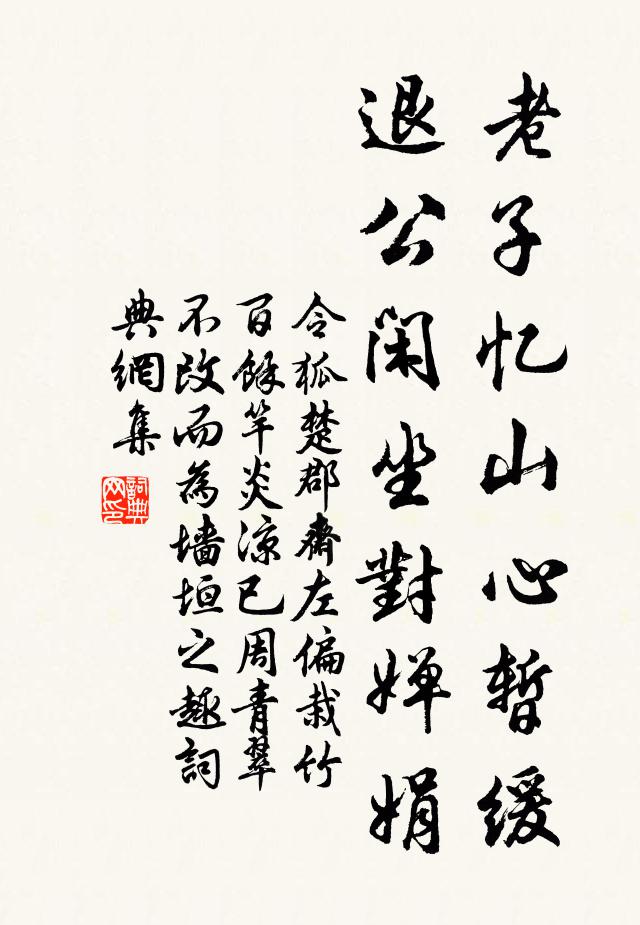 老子忆山心暫缓
退公閑坐對嬋娟
令狐楚郡齋左偏栽竹
百餘竿炎凉已周青翠
不改而為墻垣之趣詞
典網集
詞典网印